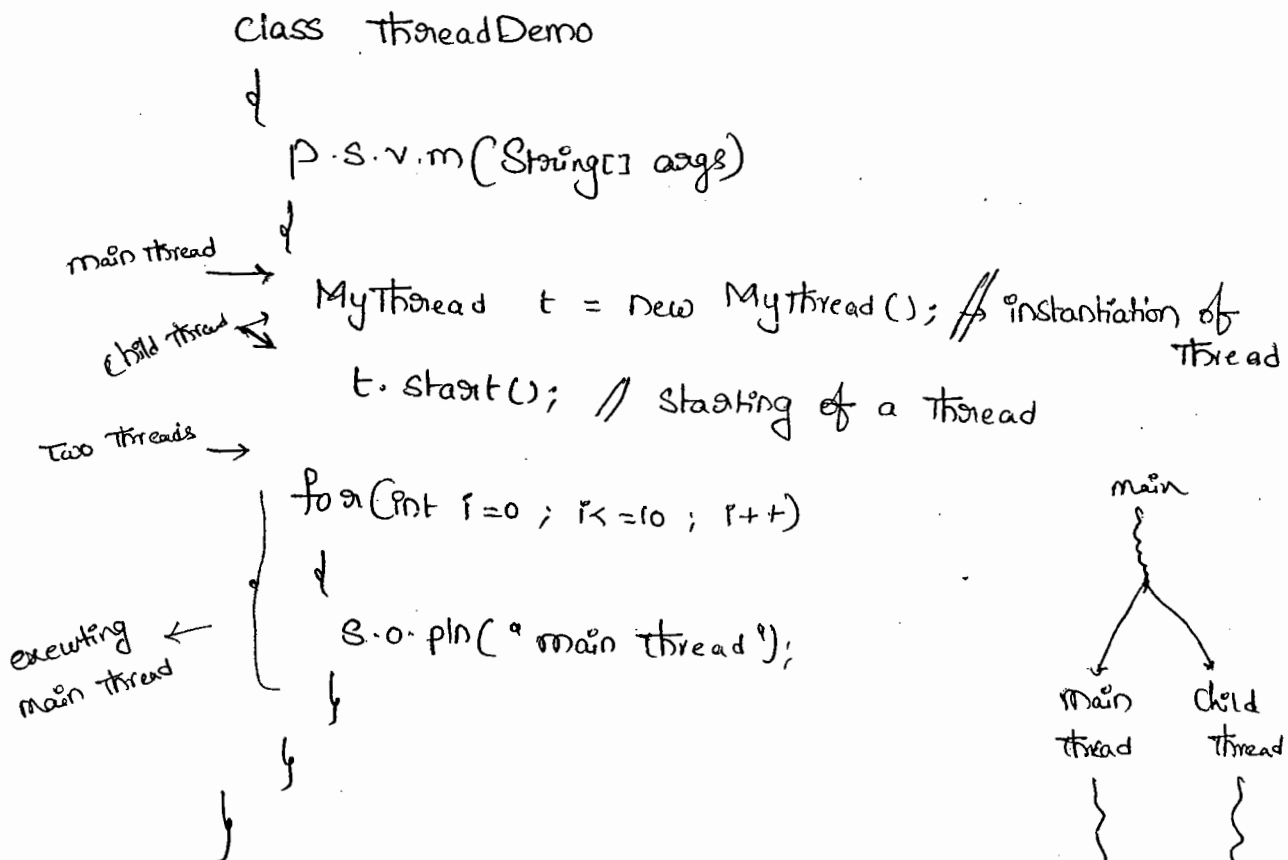 class ThreadDemo
{
p.s.v.m(String[] args)
{
main thread →
MyThread t = new MyThread(); // instantiation of
Thread
child thread
t.start(); // starting of a Thread
Two Threads →
for(int i=0 ; i<=10 ; i++)
{
s.o.pln("main thread");
executing ←
main thread
}
}
}
main
main child
thread thread